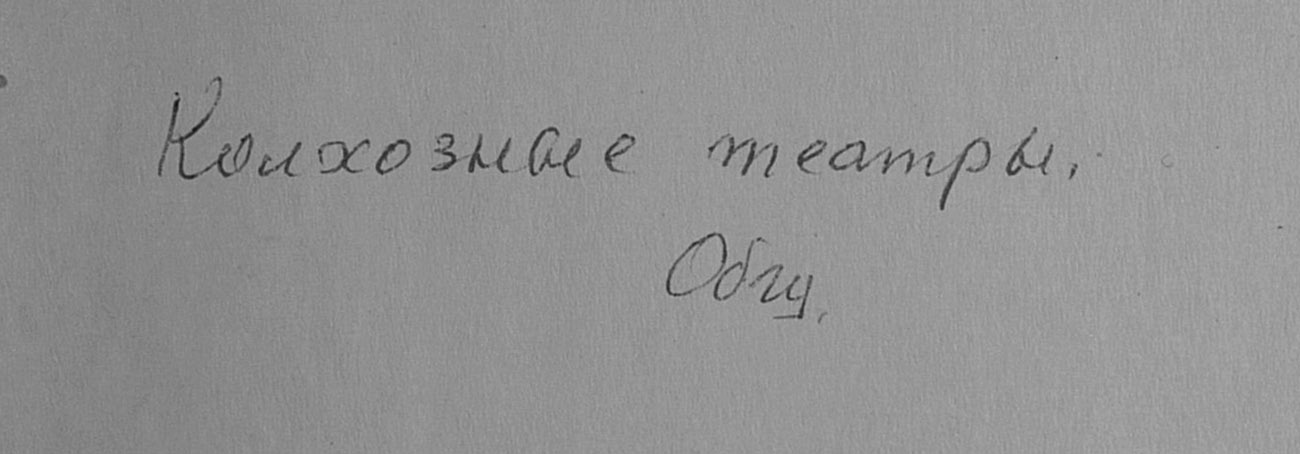 Колхозные театры.